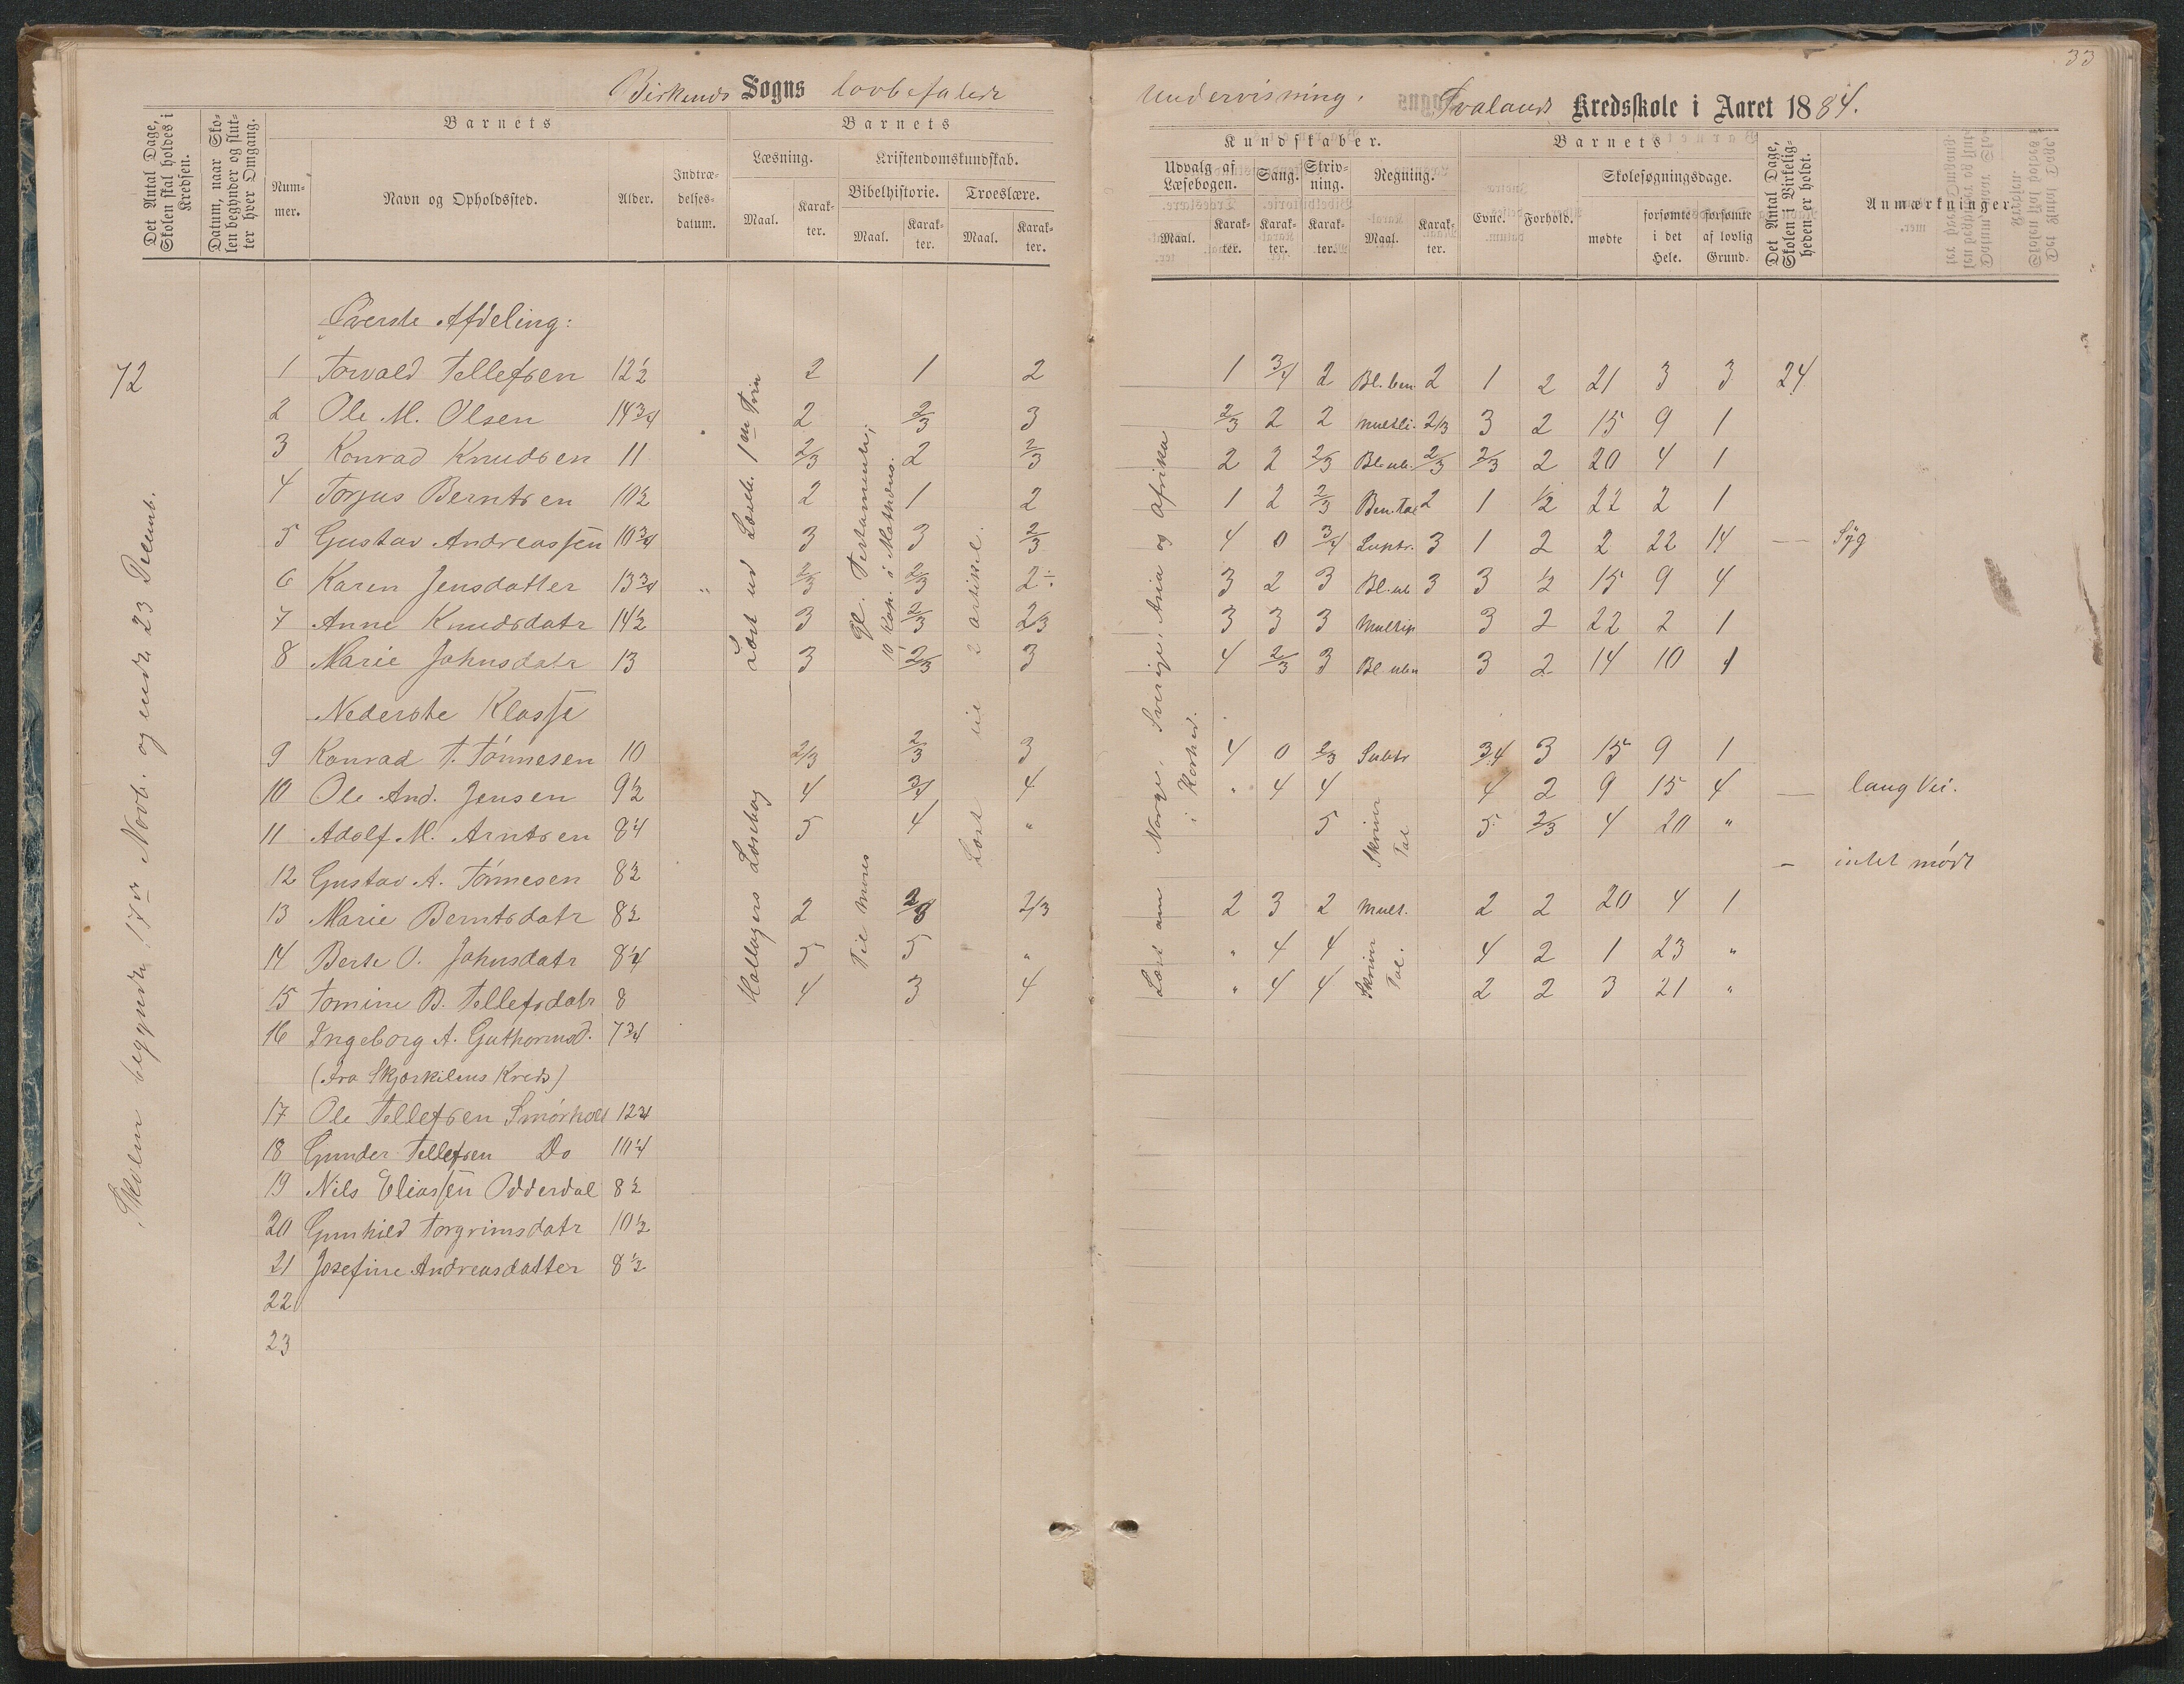 33
Birkenes Sogns lovbefalede Undervisning. Svalands Kredsskole i Aaret 1884.
Det Antal Dage, Skolen skal holdes i Kredsen.
Datum, naar Skolen begynder og slutter hver Omgang.
Barnets
Nummer.
Navn og Opholdssted.
Alder.
Indtrædelsesdatum.
Barnets
Læsning.
Maal.
Karakter.
Kristendomskundskab.
Bibelhistorie.
Maal.
Karakter.
Troeslære.
Maal.
Karakter.
Kundskaber.
Udvalg af Læsebogen.
Maal.
Karakter.
Sang.
Karakter.
Skrivning.
Karakter.
Regning.
Maal.
Karakter.
Barnets
Evne.
Forhold.
Skolesøgningsdage.
mødte
forsømte i det Hele.
forsømte af lovlig Grund.
Det Antal Dage, Skolen i Virkeligheden er holdt.
Anmærkninger.
72
Skolen begyndte 17de Novb. og endte 23 Decemb.
Øverste Afdeling:
1 Torvald Tellefsen 12½ 2 1 2 1 3/4 2 2 1 2 21 3 3 24
2 Ole M. Olsen 14¾ 2 2/3 3 2/3 2 2 Multi. 2/3 3 2 15 9 1
3 Konrad Knudsen 11 2/3 2 2/3 2 2 2/3 2/3 2/3 2 20 4 1
4 Torjus Berntsen 10½ 2 1 2 1 2 2/3 Ben. Tal 2 1 1/2 22 2 1
5 Gustav Andreassen 10¾ 3 3 2/3 4 0 3/4 Subtr. 3 1 2 2 22 14 — Syg
6 Karen Jensdatter 13¾ " 2/3 2/3 2÷ 3 2 3 3 3 1/2 15 9 4
7 Anne Knudsdatr 14½ 3 2/3 2/3 3 3 3 Multip 3 2 22 2 1
8 Marie Johnsdatr 13 3 2/3 3 4 2/3 3 3 2 14 10 1
Nederste Klasse
9 Konrad T. Tønnesen 10 2/3 2/3 3 4 0 2/3 Subtr 3/4 3 15 9 1
10 Ole And. Jensen 9½ 4 3/4 4 " 4 4 4 2 9 15 4 — lang Vei.
11 Adolf M. Arntsen 8¼ 5 4 " 5 5 2/3 4 20 "
12 Gustav A. Tønnesen 8½ — intet mødt
13 Marie Berntsdatr 8½ 2 2/3 2/3 2 3 2 Mult. 2 2 20 4 1
14 Berte O. Johnsdatr 8¼ 5 5 " " 4 4 4 2 1 23 "
15 Tomine B. Tellefsdatr 8 4 3 4 " 4 4 2 2 3 21 "
16 Ingeborg A. Guthormsd. 7¾
(fra Skjærkilens Kreds)
17 Ole Tellefsen Smørholt 12¾
18 Gunder Tellefsen Do 10¼
19 Nils Eliassen Odderdal 8½
20 Gunhild Torgrimsdatr 10½
21 Josefine Andreasdatter 8½
22
23
Læst ud Læseb. 1ste Trin
Gl. Testamente;
10 Kap. i Mathæus.
Læst til 2 artikel.
Læst om Norge, Sverige, Asia og Afrika
i Korthed.
Til Moses
Skriver Tal
Skriver Tal.